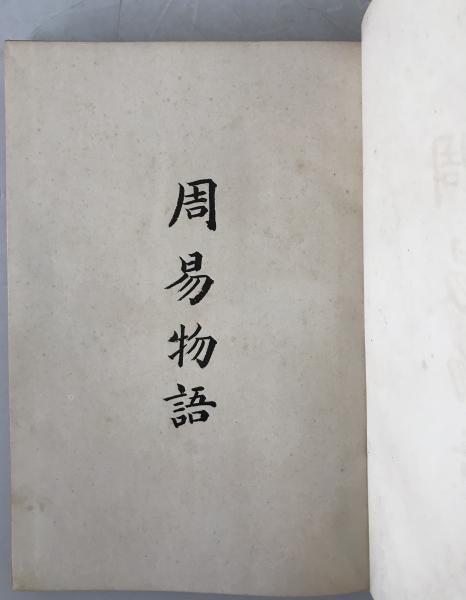 周易物語